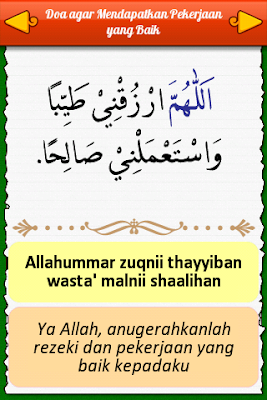 Doa agar Mendapatkan Pekerjaan
yang Baik
اَللّٰهُمَّ ارْزُقْنِيْ طَيِّبًا
وَاسْتَعْمَلْنِيْ صَالِحًا.
Allahummar zuqnii thayyiban
wasta' malnii shaalihan
Ya Allah, anugerahkanlah
rezeki dan pekerjaan yang
baik kepadaku